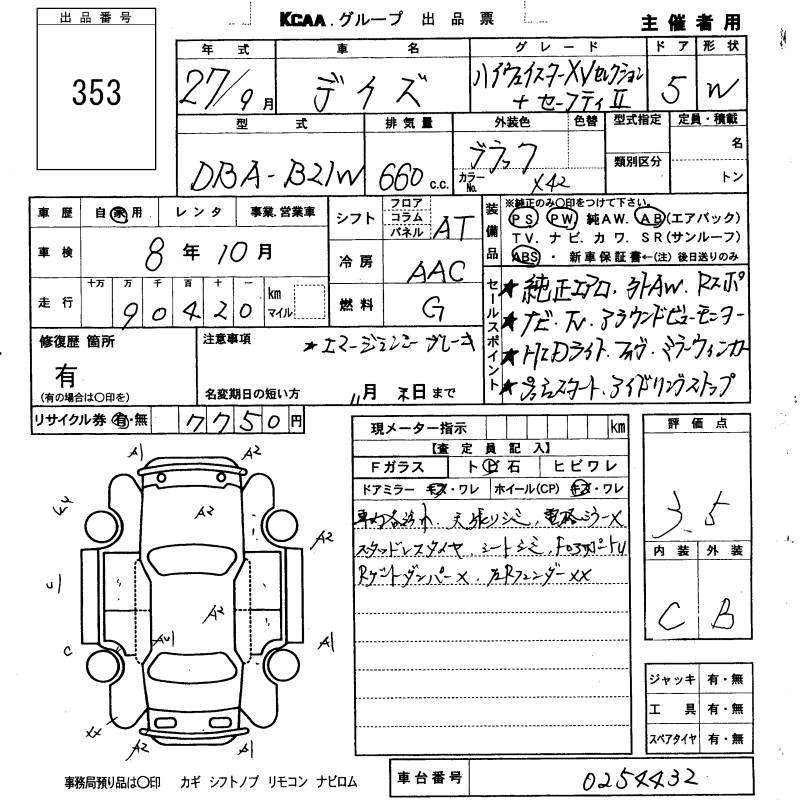 出品番号
353
KCAA.グループ 出品票
主催者用
年式 車名 グレード ドア 形状
27/9月 デイズ ハイウェイスターXVセレクション
+セーフティII 5 W
型式 排気量 外装色 色替 型式指定 定員・積載
DBA-B21W 660 c.c. ブラック 名
カラーNo. X42 類別区分 トン
車歴 自家用 レンタ 事業.営業車
車検 8年10月
走行 十万 万 千 百 十 一
90420 km マイル
シフト フロア コラム パネル AT
冷房 AAC
燃料 G
装備品 ※純正のみ〇印をつけて下さい。
PS PW 純AW. AB(エアバック)
TV. ナビ. カワ. SR(サンルーフ)
ABS・新車保証書←(注)後日送りのみ
セールスポイント
★純正エアロ.外AW.Rスポ
★ナビ.TV.アラウンドビューモニター
★HIDライト.フォグ.ミラーウィンカー
★プッシュスタート.アイドリングストップ
修復歴 箇所
有
(有の場合は〇印を)
注意事項 ★エマージェンシーブレーキ
名変期日の短い方 月 日まで
リサイクル券 有・無 7750円
現メーター指示 km
【査定員記入】
Fガラス トビ石 ヒビワレ
ドアミラー キズ・ワレ ホイール(CP) キズ・ワレ
天張りシミ.電格ミラーX
スタッドレスタイヤ.シートシミ.
RゲートダンパーX.左RフェンダーXX
評価点
3.5
内装 外装
C B
ジャッキ 有・無
工具 有・無
スペアタイヤ 有・無
A1 A2
A2
A2
U
A2
C AU1 A1
XX
A2 A1
事務局預り品は〇印 カギ シフトノブ リモコン ナビロム
車台番号 0254432